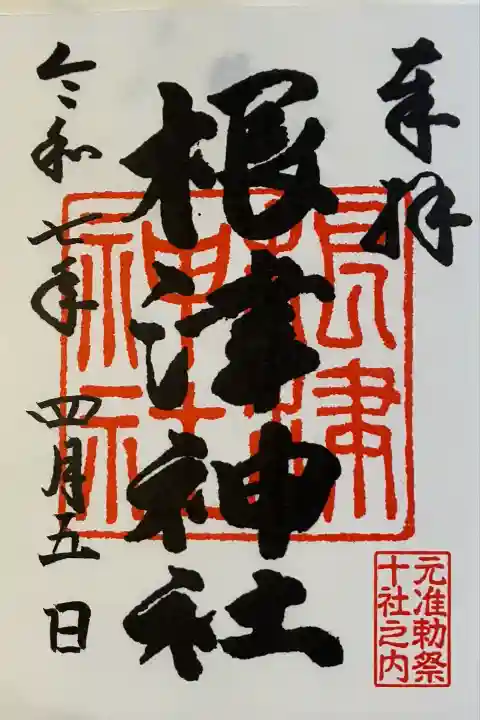 奉拝
根津神社
令和七年四月五日
根津
神社
元准勅祭
十社之内